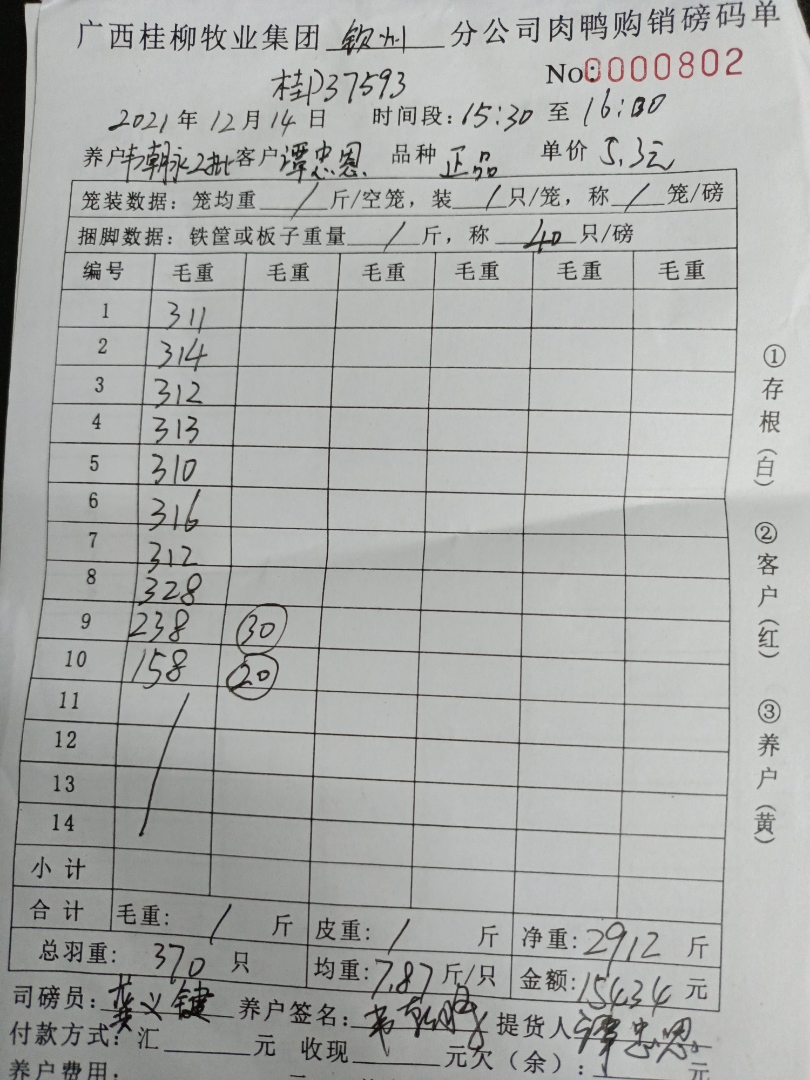 广西桂柳牧业集团 钦州 分公司肉鸭购销磅码单
桂D37593 No:0000802
2021年12月14日 时间段:15:30至16:00
养户韦朝永2批客户谭忠恩 品种 正品 单价 5.3元
笼装数据:笼均重 / 斤/空笼,装 / 只/笼,称 / 笼/磅
捆脚数据:铁筐或板子重量 / 斤,称 40 只/磅
编号 毛重 毛重 毛重 毛重 毛重 毛重
1 311
2 314
3 312
4 313
5 310
6 316
7 312
8 328
9 238 30
10 158 20
11
12
13
14
小计
合计 毛重: / 斤 皮重: / 斤 净重:2912 斤
总羽重: 370 只 均重:7.87斤/只 金额:15434元
司磅员: 养户签名: 提货人谭忠恩
付款方式:汇 元 收现 元欠(余): 元
养户费用:
①存根(白) ②客户(红) ③养户(黄)